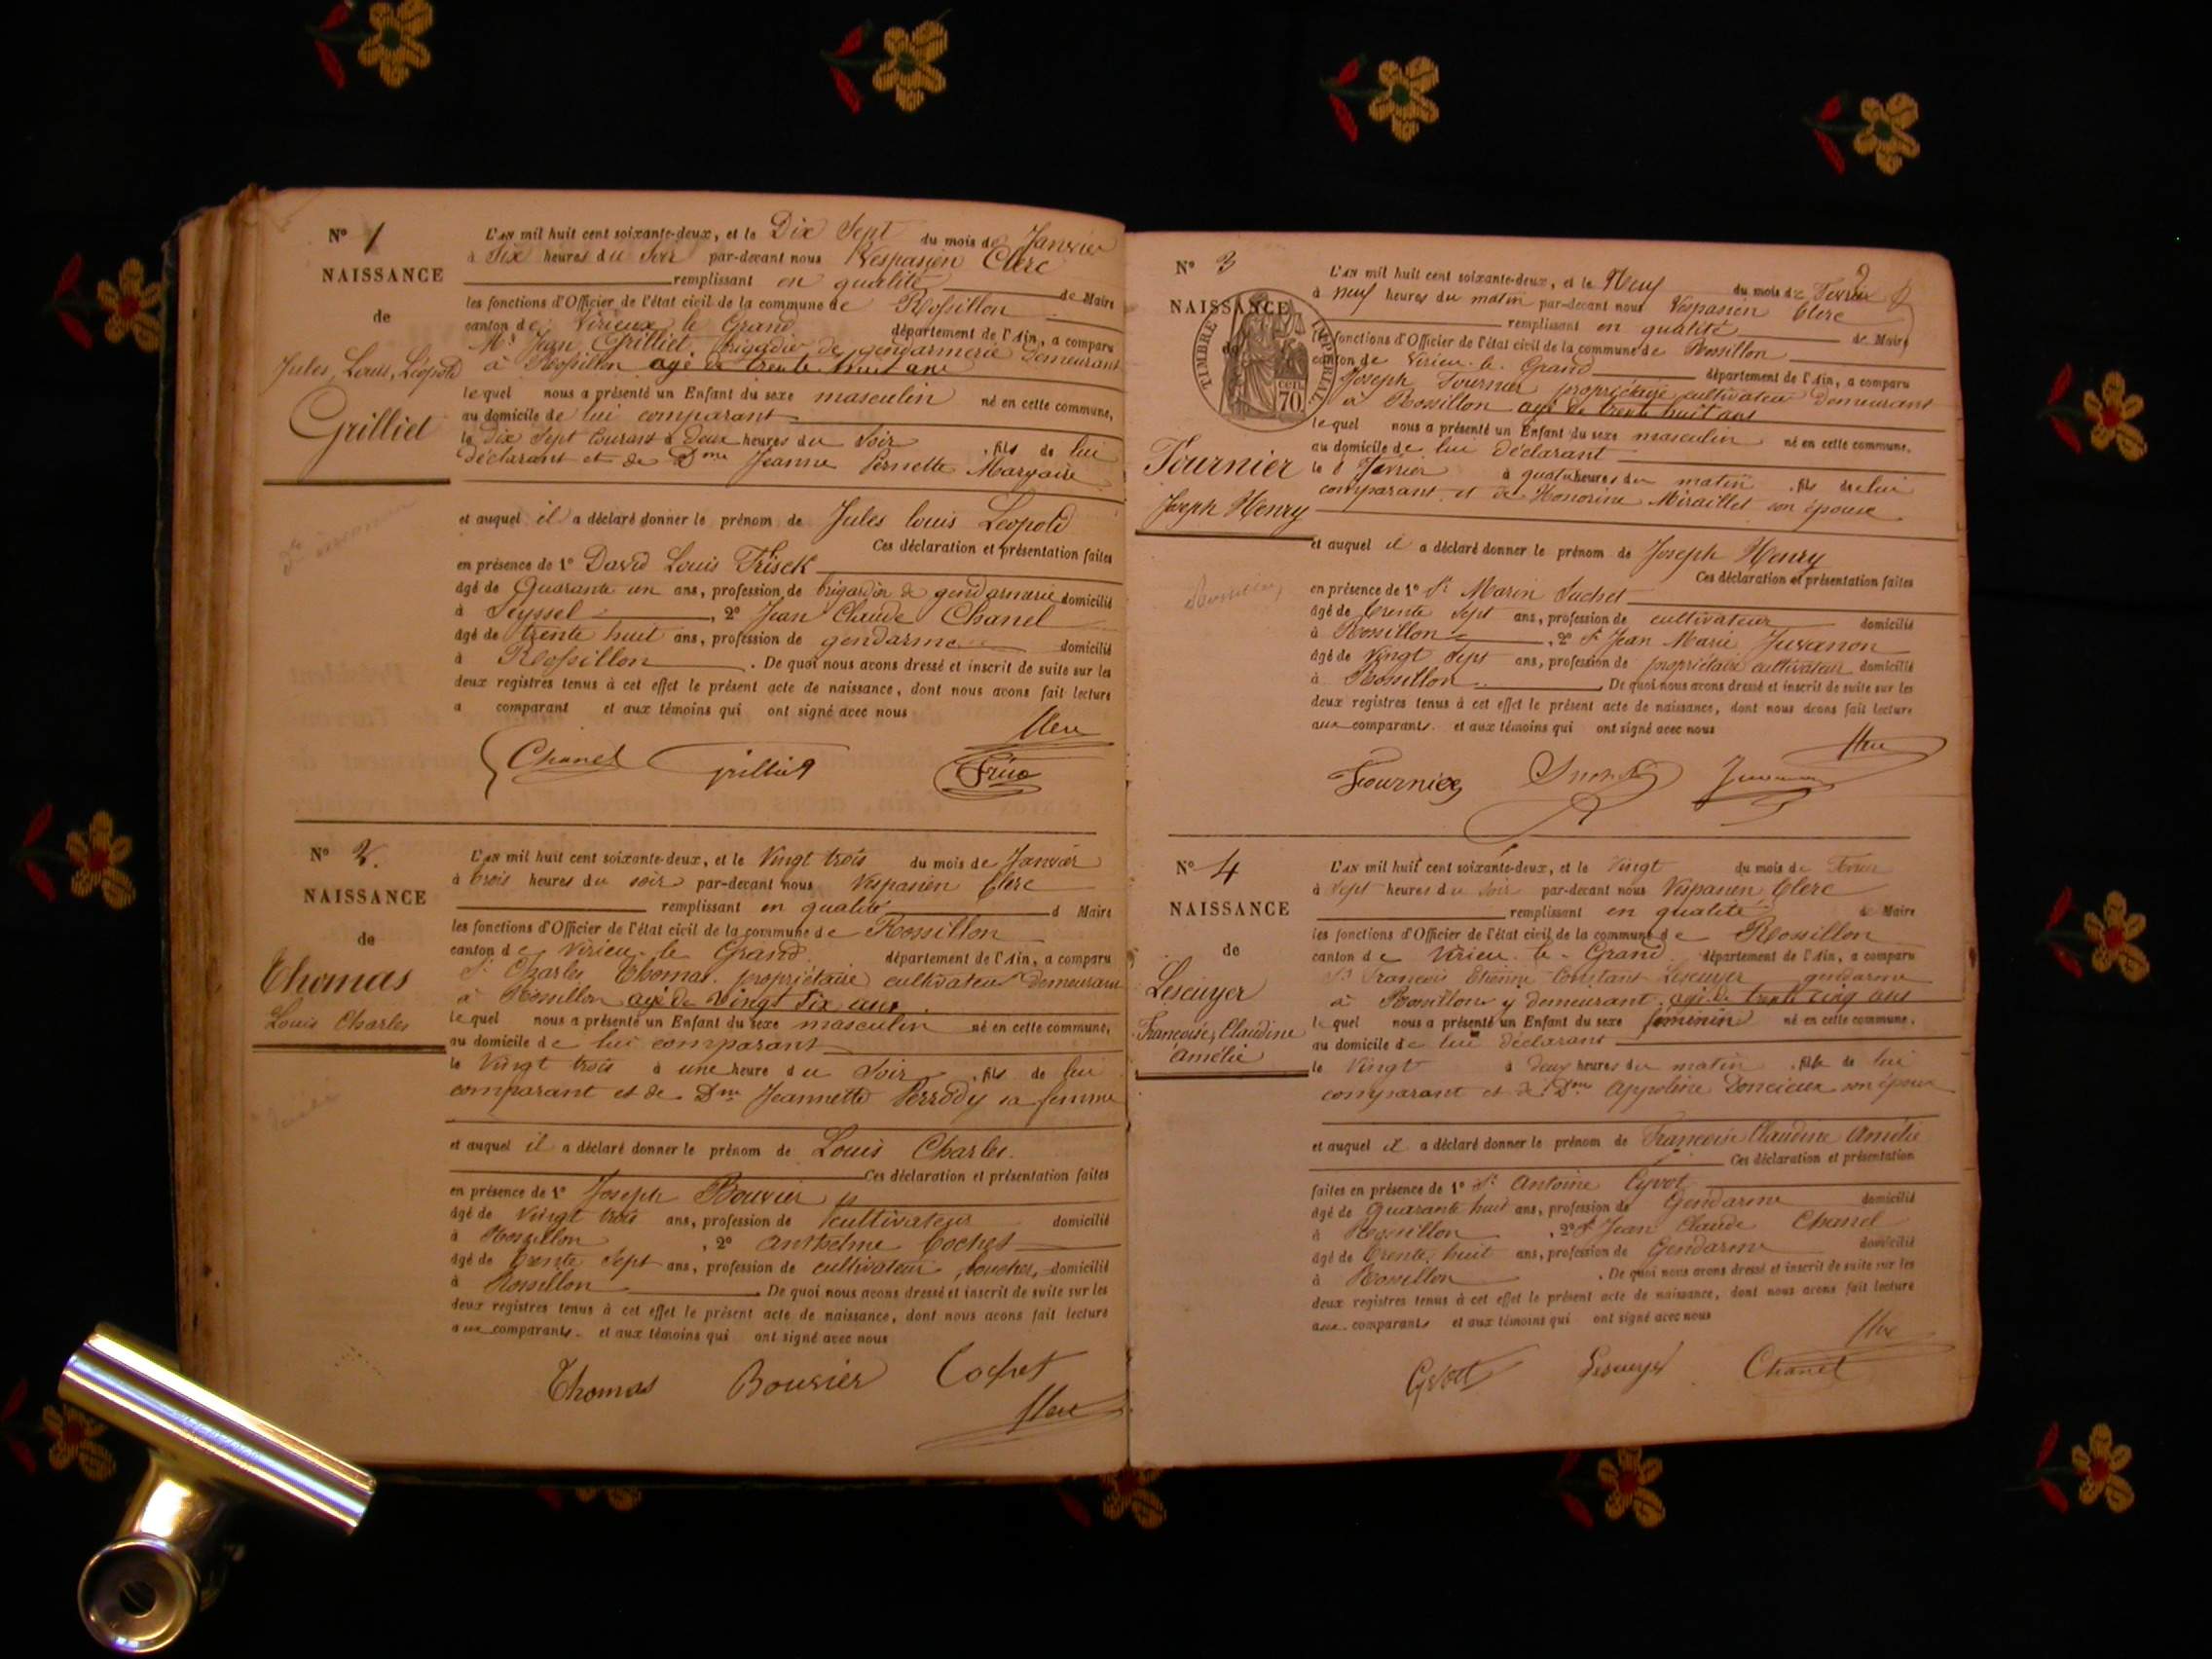 N° 1
NAISSANCE
de
Jules, Louis, Léopold
Grilliet
L'AN mil huit cent soixante-deux, et le Dix Sept du mois de Janvier
à Six heures du Soir par-devant nous Vespasien Clerc
remplissant en qualité de Maire
les fonctions d'Officier de l'état civil de la commune de Rossillon
canton de Virieux le Grand département de l'Ain, a comparu
Mr Jean Grilliet brigadier de gendarmerie demeurant
à Rossillon agé de trente huit ans
lequel nous a présenté un Enfant du sexe masculin né en cette commune,
au domicile de lui comparant
le dix Sept courant à Deux heures du Soir , fils de lui
déclarant et de Dme Jeanne Pernette
et auquel il a déclaré donner le prénom de Jules louis Léopold
Ces déclaration et présentation faites
en présence de 1° David Louis
âgé de Quarante un ans, profession de brigadier de gendarmerie domicilié
à Seyssel , 2° Jean Claude Chanel
âgé de trente huit ans, profession de gendarme domicilié
à Rossillon . De quoi nous avons dressé et inscrit de suite sur les
deux registres tenus à cet effet le présent acte de naissance, dont nous avons fait lecture
a comparant et aux témoins qui ont signé avec nous
Clerc
Chanel Grilliet
N° 2.
NAISSANCE
de
Thomas
Louis Charles
L'AN mil huit cent soixante-deux, et le Vingt trois du mois de Janvier
à trois heures du soir par-devant nous Vespasien Clerc
remplissant en qualité d Maire
les fonctions d'Officier de l'état civil de la commune de Rossillon
canton de Virieu-le Grand département de l'Ain, a comparu
Sr Charles Thomas propriétaire cultivateur demeurant
à Rossillon agé de vingt six ans
lequel nous a présenté un Enfant du sexe masculin né en cette commune,
au domicile de lui comparant
le Vingt trois à une heure du Soir , fils de lui
comparant et de Dme Jeannette Perrody sa femme
et auquel il a déclaré donner le prénom de Louis Charles.
Ces déclaration et présentation faites
en présence de 1° Joseph Bouvier
âgé de Vingt trois ans, profession de cultivateur domicilié
à Rossillon , 2° Anthelme Cochet
âgé de trente Sept ans, profession de cultivateur, boucher, domicilié
à Rossillon . De quoi nous avons dressé et inscrit de suite sur les
deux registres tenus à cet effet le présent acte de naissance, dont nous avons fait lecture
aux comparants. et aux témoins qui ont signé avec nous
Thomas Bouvier Cochet
Clerc
2
N° 3
NAISSANCE
de
TIMBRE IMPERIAL
70 cen.
Fournier
Joseph Henry
L'AN mil huit cent soixante-deux, et le Neuf du mois de Fevrier
à neuf heures du matin par-devant nous Vespasien Clerc
remplissant en qualité de Maire
les fonctions d'Officier de l'état civil de la commune de Rossillon
canton de Virieu-le-Grand département de l'Ain, a comparu
Joseph Fournier propriétaire cultivateur demeurant
à Rossillon agé de trente huit ans
lequel nous a présenté un Enfant du sexe masculin né en cette commune.
au domicile de lui déclarant
le 8 à quatre heures du matin , fils de lui
comparant et de Honorine Miraillet son épouse
et auquel il a déclaré donner le prénom de Joseph Henry
Ces déclaration et présentation faites
en présence de 1° Sr Marin Suchet
âgé de trente Sept ans, profession de cultivateur domicilié
à Rossillon , 2° Sr Jean Marie Juvanon
âgé de Vingt Sept ans, profession de propriétaire cultivateur domicilié
à Rossillon . De quoi nous avons dressé et inscrit de suite sur les
deux registres tenus à cet effet le présent acte de naissance, dont nous avons fait lecture
aux comparants. et aux témoins qui ont signé avec nous
Clerc
Fournier
N° 4
NAISSANCE
de
Lescuyer
Françoise, Claudine
Amélie
L'AN mil huit cent soixante-deux, et le Vingt du mois de
à Sept heures du Soir par-devant nous Vespasien Clerc
remplissant en qualité de Maire
les fonctions d'Officier de l'état civil de la commune de Rossillon
canton de Virieu-le-Grand département de l'Ain, a comparu
Sr François Etienne Constant Lescuyer gendarme
à Rossillon y demeurant. agé de trente cinq ans
lequel nous a présenté un Enfant du sexe féminin né en cette commune.
au domicile de lui déclarant
le Vingt à deux heures du matin , fille de lui
comparant et de Dme Appoline Doncieux son épouse
et auquel il a déclaré donner le prénom de Françoise Claudine Amélie
Ces déclaration et présentation
faites en présence de 1° Sr Antoine
âgé de Quarante huit ans, profession de Gendarme domicilié
à Rossillon , 2° Sr Jean Claude Chanel
âgé de trente huit ans, profession de Gendarme domicilié
à Rossillon . De quoi nous avons dressé et inscrit de suite sur les
deux registres tenus à cet effet le présent acte de naissance, dont nous avons fait lecture
aux comparants et aux témoins qui ont signé avec nous
Clerc
Lescuyer Chanel